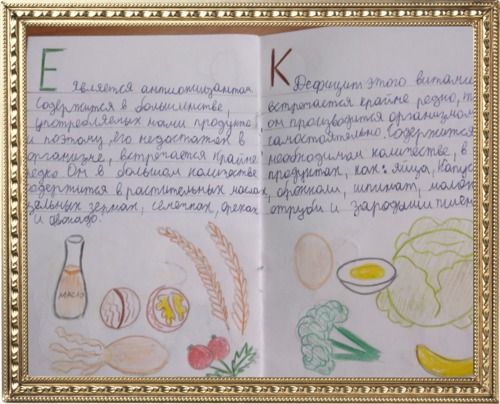 Е Является антиоксидантом
Содержится в большинстве,
употребляемых нами продукте
и поэтому, его недостаток в
организме, встречается крайне
редко. Он в большом количестве
содержится в растительных маслах,
цельных зернах, семечках, орехах
и авокадо.
МАСЛО
К Дефицит этого витами
встречается крайне редко, т
он производится организмом
самостоятельно. Содержится
необходимом количестве, в
продуктах, как: яйца, капус
, отруби и зародыши пшен